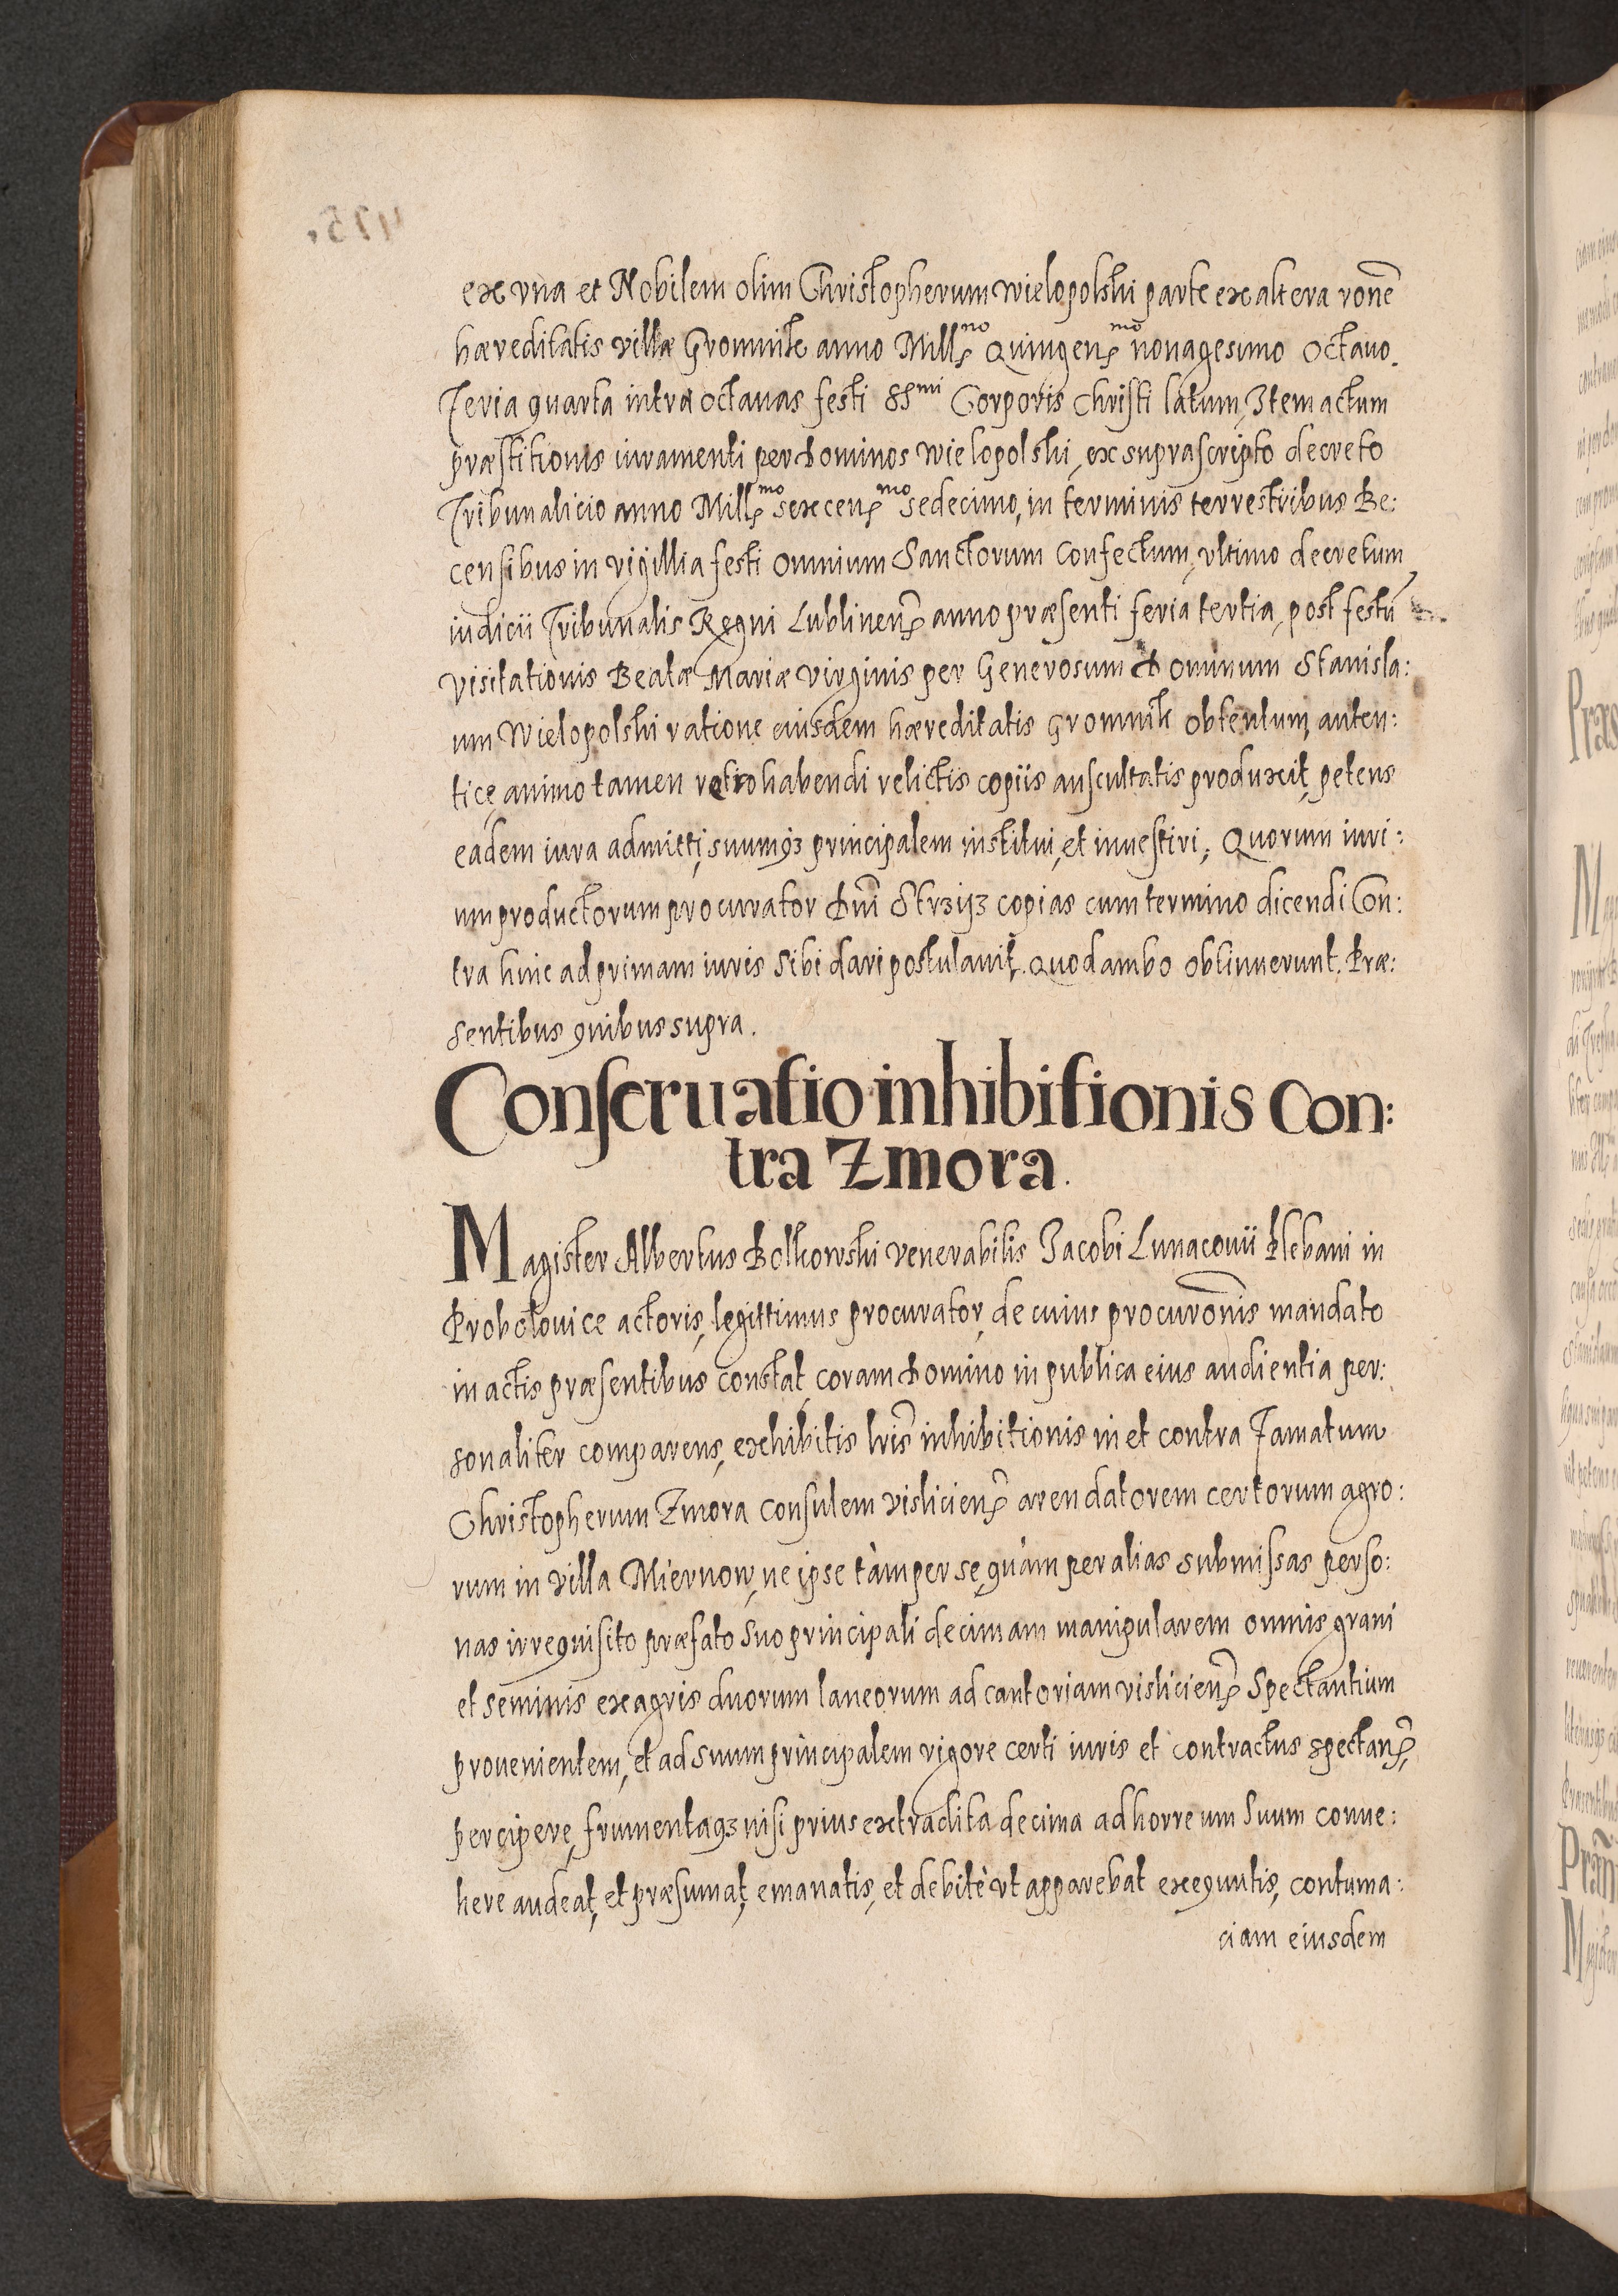 ex vna et Nobilem olim Christopherum Wielopolski parte ex altera rone͂
hæreditatis villæ Gromnik anno Mill͛no Quingen͛mo nonagesimo octauo.
Feria quarta intra octauas festi SSmi Corporis Christi latum, Item actum
præstitionis iuramenti per Dominos Wielopolski, ex suprascripto decreto
Tribunalicio anno Mill͛mo sexcen͛mo sedecimo, in terminis terrestribus Be:
censibus in vigillia festi omnium Sanctorum Confectum, vltimo decretum
iudicii Tribunalis Regni Lublinen͛ anno præsenti feria tertia, post festū
visitationis Beatæ Mariæ virginis per Generosum Dominum Stanisla:
um Wielopolski ratione eiusdem hæreditatis Gromnik obtentum, auten:
tice, animo tamen retrohabendi relictis copiis auscultatis produxit, petens
eadem iura admitti, suumqꝫ principalem institui, et inuestiri, Quorum iuri:
um productorum procurator Dn͂i Strzyz copias cum termino dicendi Con:
tra hinc ad primam iuris sibi dari postulauit. Quod ambo obtinuerunt. Præ:
sentibus quibus supra.
Conseruatio inhibitionis Con:
tra Zmora.
Magister Albertus Bolkowski venerabilis Jacobi Lunacouii Plebani in
Probolouice actoris, legittimus procurator, de cuius procuron͂is mandato
in actis præsentibus constat, coram Domino in publica eius audientia per:
sonaliter comparens, exhibitis lr͂is inhibitionis in et contra Famatum
Christopherum Zmora Consulem vislicien͛ arendatorem certorum agro:
rum in villa Miernow, ne ipse tàm per se, quàm per alias submissas perso:
nas irrequisito præfato suo principali decimam manipularem omnis grani
et seminis ex agris duorum laneorum ad cantoriam vislicien͛ Spectantium
prouenientem, et ad suum principalem vigore certi iuris et contractus spectan͛,
percipere, frumentaqꝫ nisi prius extradita decima ad horreum suum conue:
here audeat, et præsumat, emanatis, et debitè vt apparebat exequutis, contuma:
ciam eiusdem